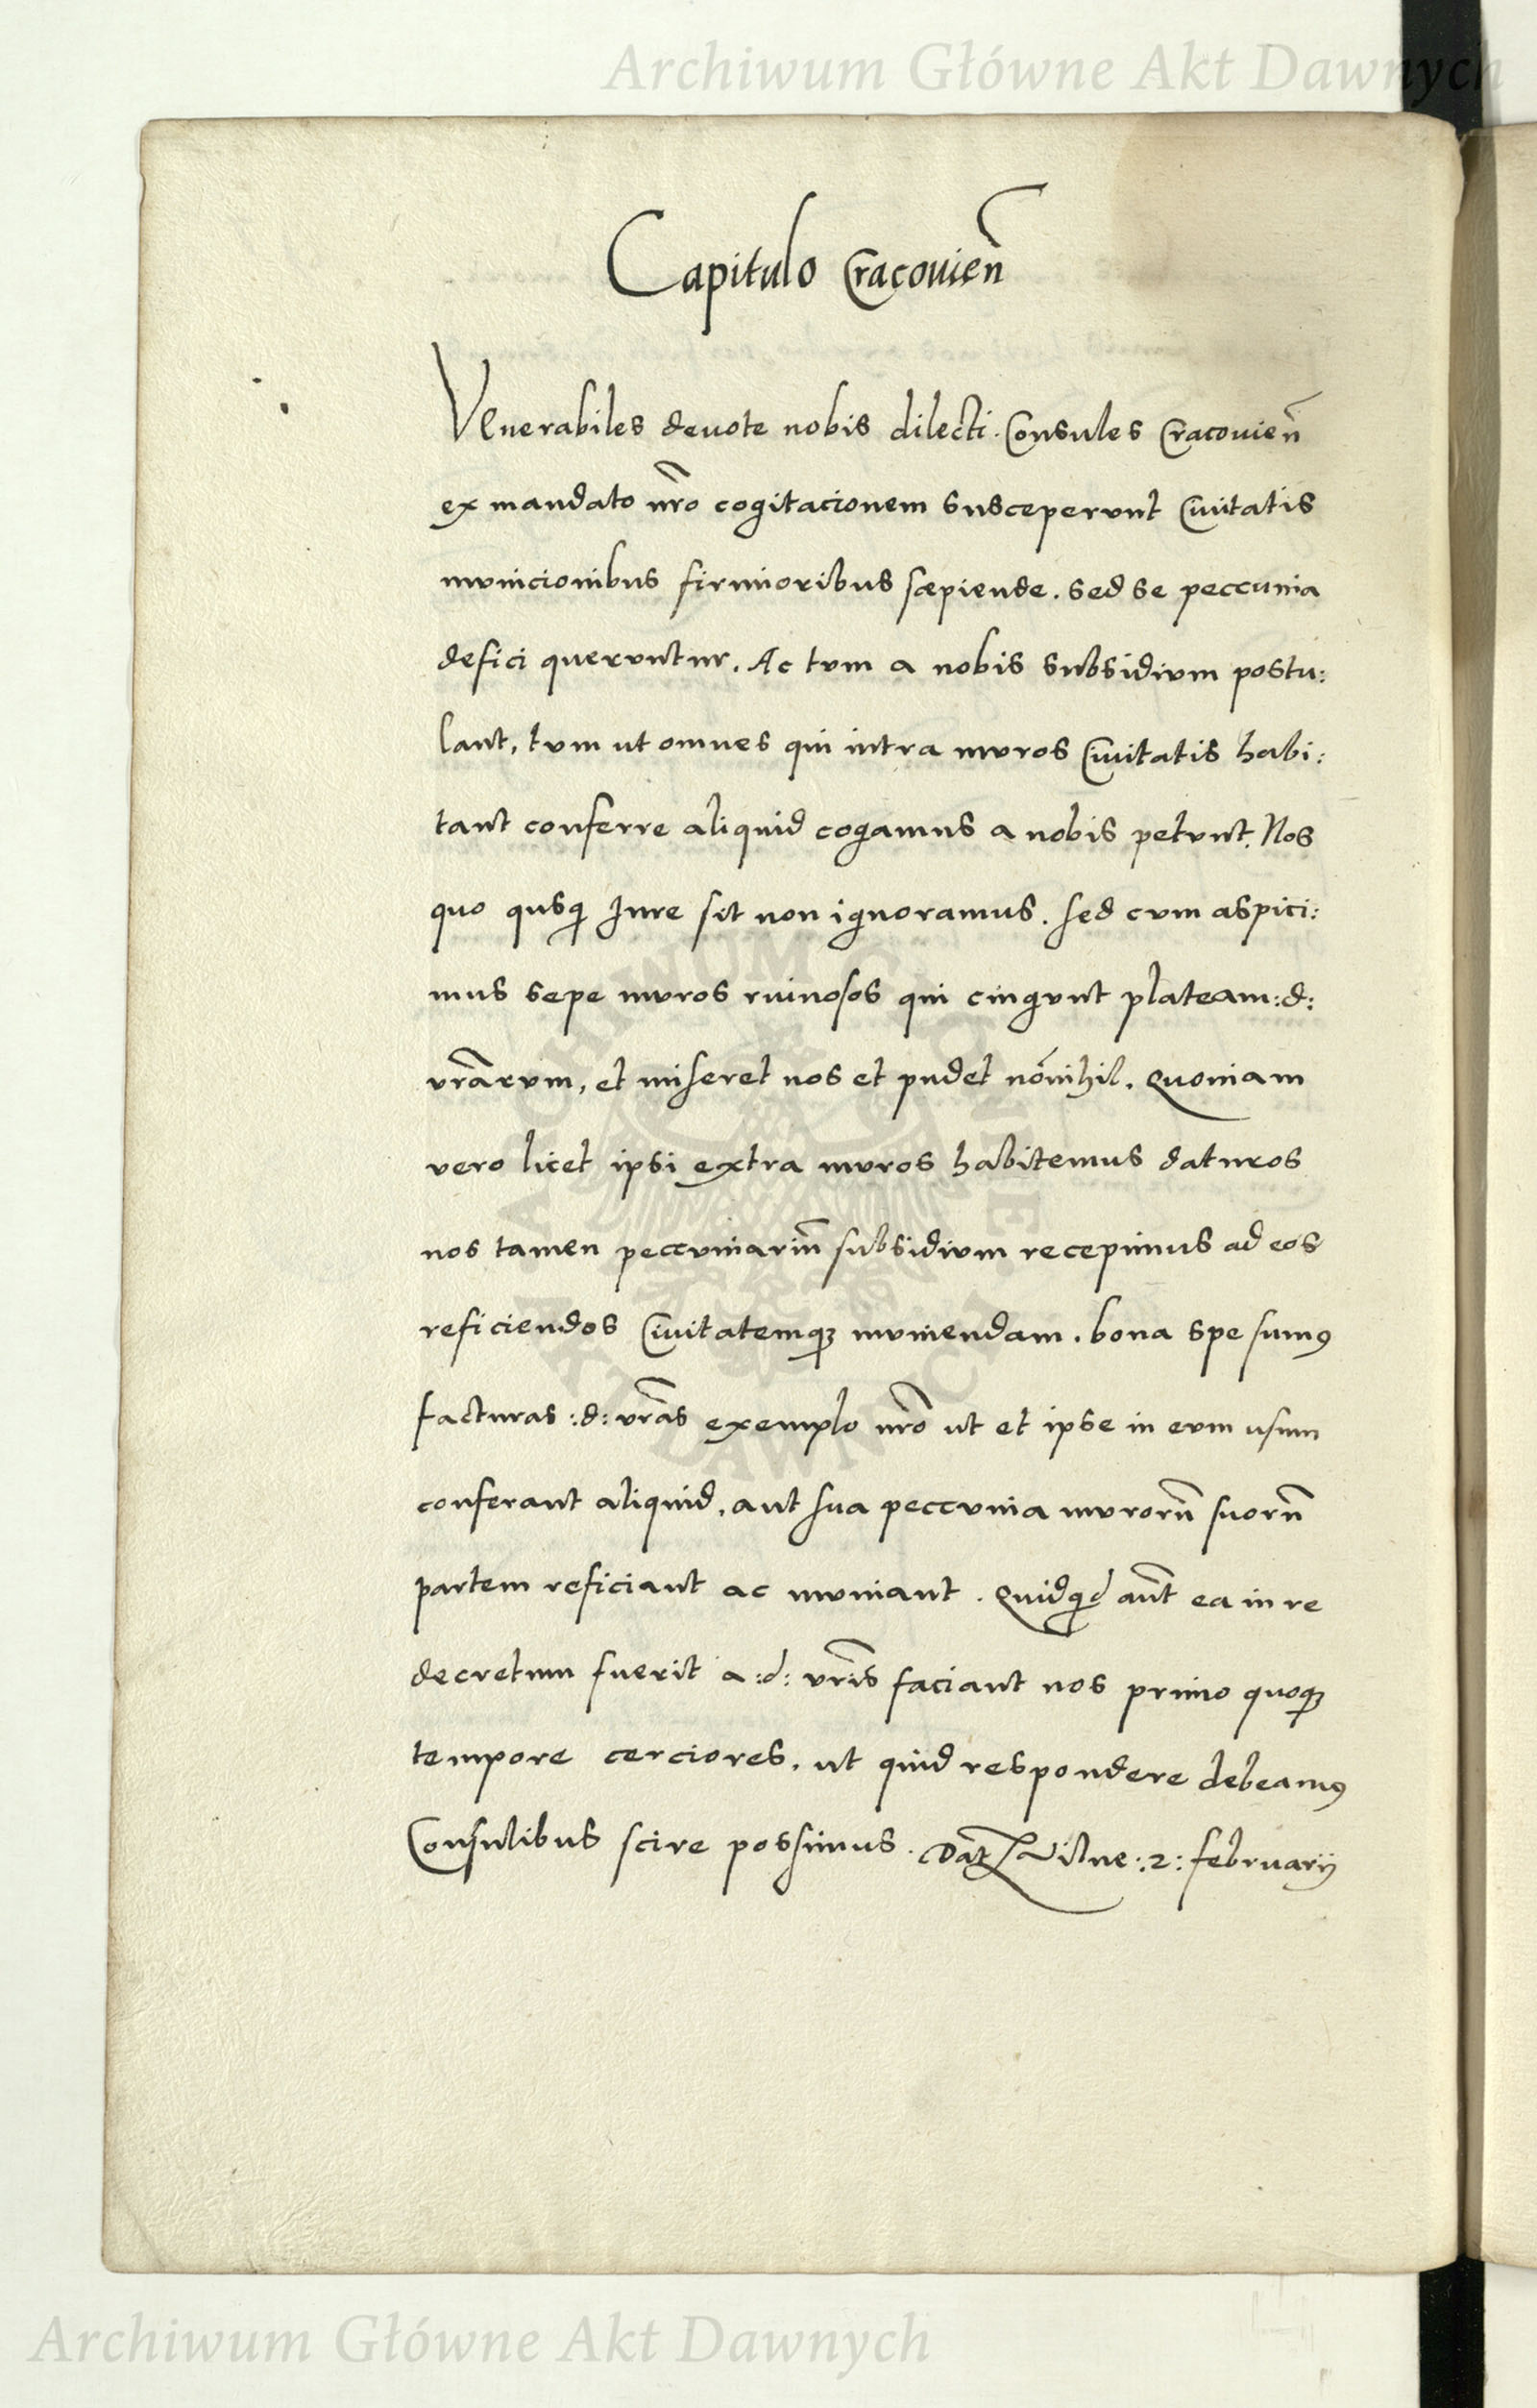 Archiwum Główne Akt Dawnych
Capitulo Cracovien̄
Venerabiles deuote nobis dilecti. Consules Cracovien̄
ex mandato nr̄o cogitacionem susceperunt Ciuitatis
municionibus firmioribus sæpiende. sed se peccunia
defici queruntur. Ac tum a nobis subsidium postu:
lant, tum ut omnes qui intra muros Ciuitatis habi:
tant conferre aliquid cogamus a nobis petunt. Nos
quo qusq̨ Jure sit non ignoramus. sed cum aspici:
mus sepe muros ruinosos qui cingunt plateam :d:
vr̄arum, et miseret nos et pudet nōnihil. Quoniam
vero licet ipsi extra muros habitemus daturos
nos tamen peccuniariū subsidium recepimus ad eos
reficiendos Ciuitatemqꝫ muniendam. bona spe sumꝰ
facturas :d: vr̄as exemplo nr̄o ut et ipse in eum usum
conferant aliquid, aut sua peccunia murorū suorū
partem reficiant ac muniant. Quidq̨d aūt ea in re
decretum fuerit a :d: vr̄is faciant nos primo quoqꝫ
tempore cerciores. ut quid respondere debeamꝰ
Consulibus scire possimus. Dat̄ Vilne :2: februarij
ARCHIWUM GŁÓWNE
AKT DAWNYCH
Archiwum Główne Akt Dawnych